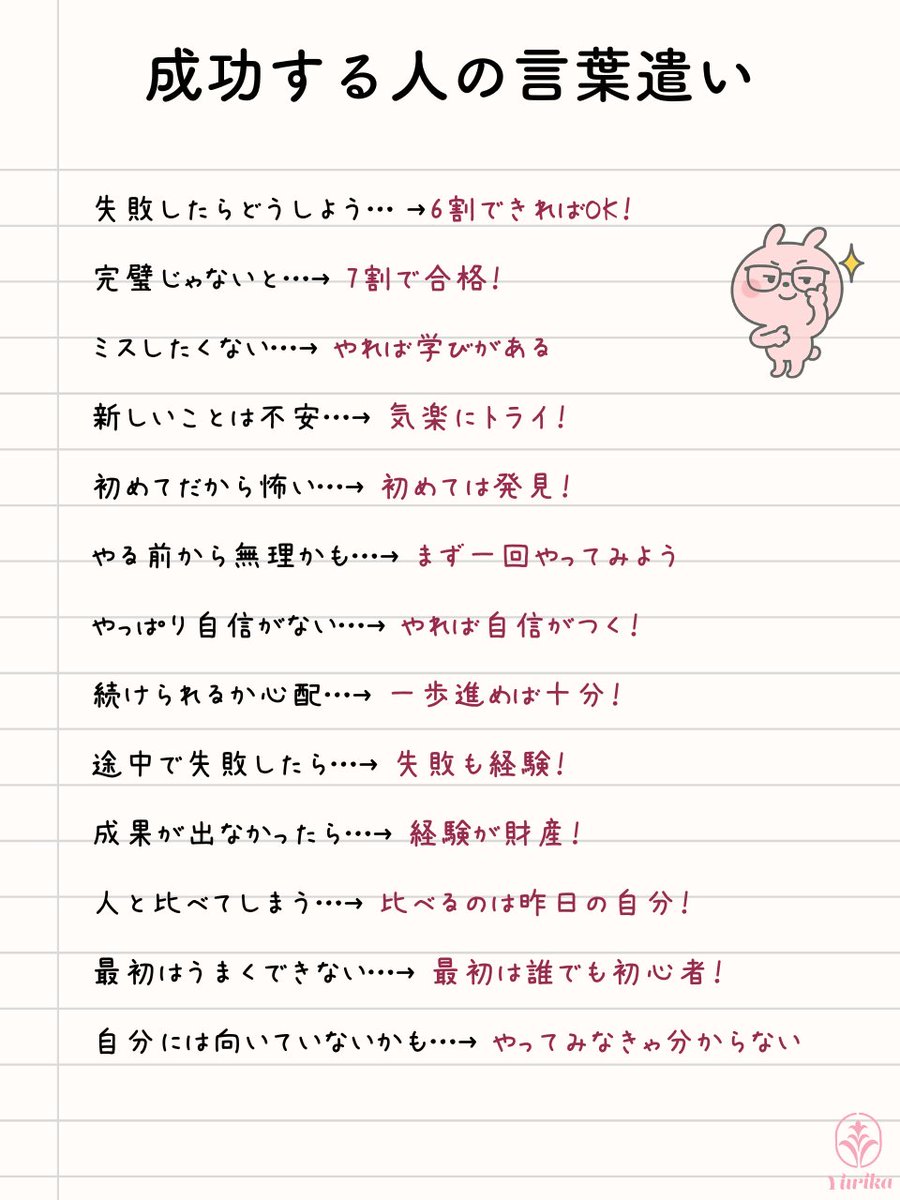 成功する人の言葉遣い
失敗したらどうしよう… →6割できればOK!
完璧じゃないと…→ 7割で合格!
ミスしたくない…→ やれば学びがある
新しいことは不安…→ 気楽にトライ!
初めてだから怖い…→ 初めては発見!
やる前から無理かも…→ まず一回やってみよう
やっぱり自信がない…→ やれば自信がつく!
続けられるか心配…→ 一歩進めば十分!
途中で失敗したら…→ 失敗も経験!
成果が出なかったら…→ 経験が財産!
人と比べてしまう…→ 比べるのは昨日の自分!
最初はうまくできない…→ 最初は誰でも初心者!
自分には向いていないかも…→ やってみなきゃ分からない
Yurika